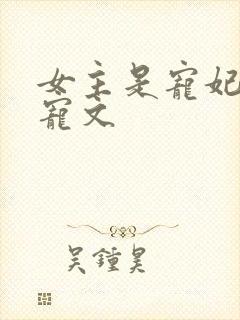 女主是寵妃
寵文
吴鍾昊